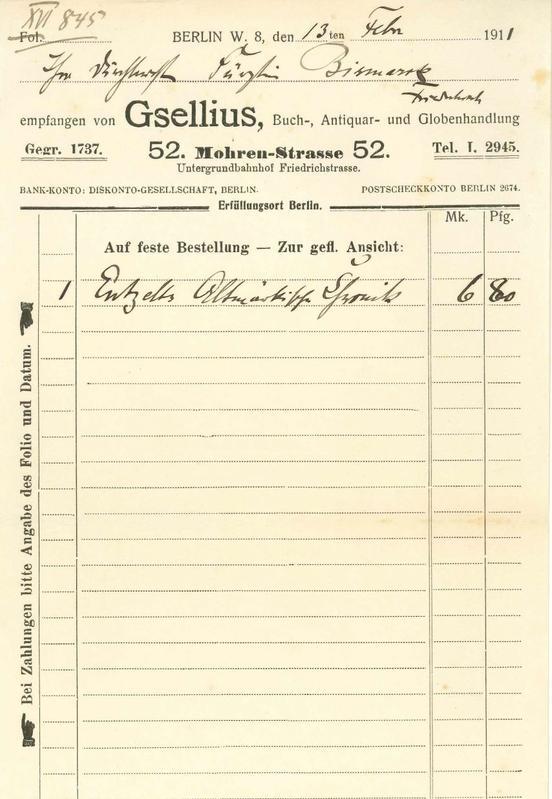 XVI 845
Fol.
BERLIN W. 8, den 13ten Febr 1911
Ihre Durchlaucht Fürstin Bismarck
Friedrichsruh
empfangen von Gsellius, Buch-, Antiquar- und Globenhandlung
Gegr. 1737. 52. Mohren-Strasse 52. Tel. I. 2945.
Untergrundbahnhof Friedrichstrasse.
BANK-KONTO: DISKONTO-GESELLSCHAFT, BERLIN. POSTSCHECKKONTO BERLIN 2674.
Erfüllungsort Berlin.
Mk. Pfg.
Auf feste Bestellung — Zur gefl. Ansicht:
1 Entzelts Altmärkische Chronik 6 80
Bei Zahlungen bitte Angabe des Folio und Datum.